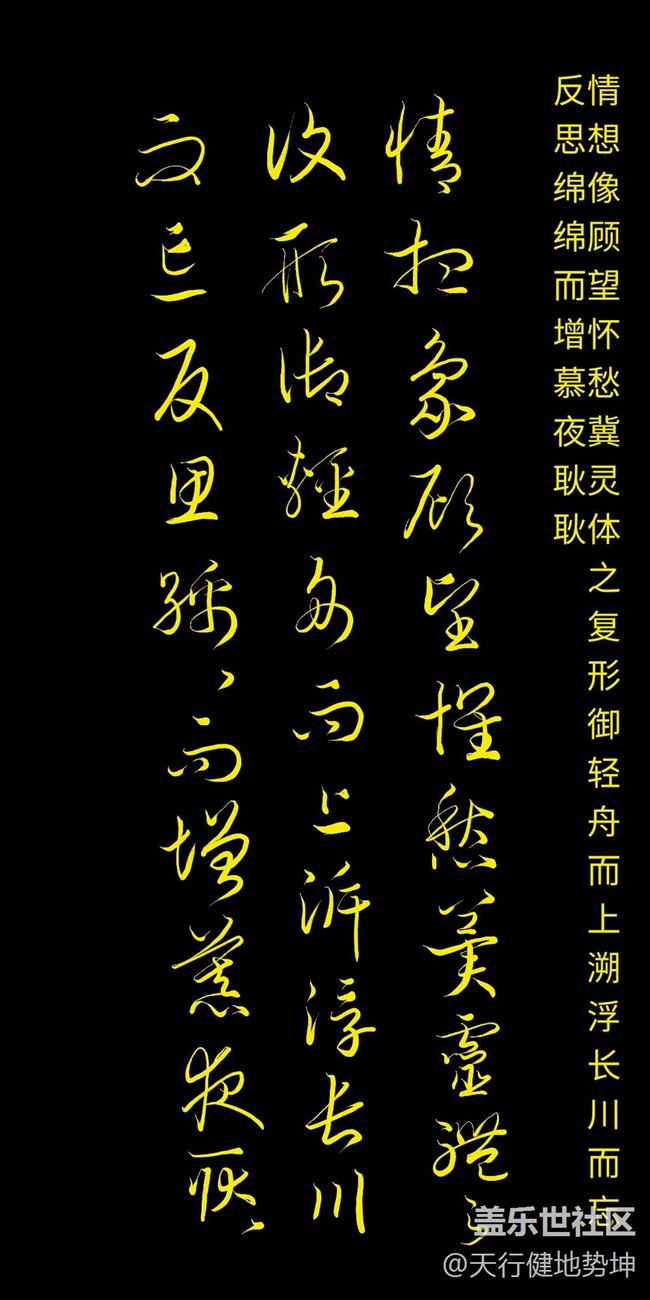 情想像顾望怀愁冀灵体之复形御轻舟而上溯浮长川而忘
反思绵绵而增慕夜耿耿
情想象顧望懷愁冀靈體之
復形御輕舟而上泝浮長川
而忘反思綿、而增慕夜耿、
盖乐世社区
@天行健地势坤